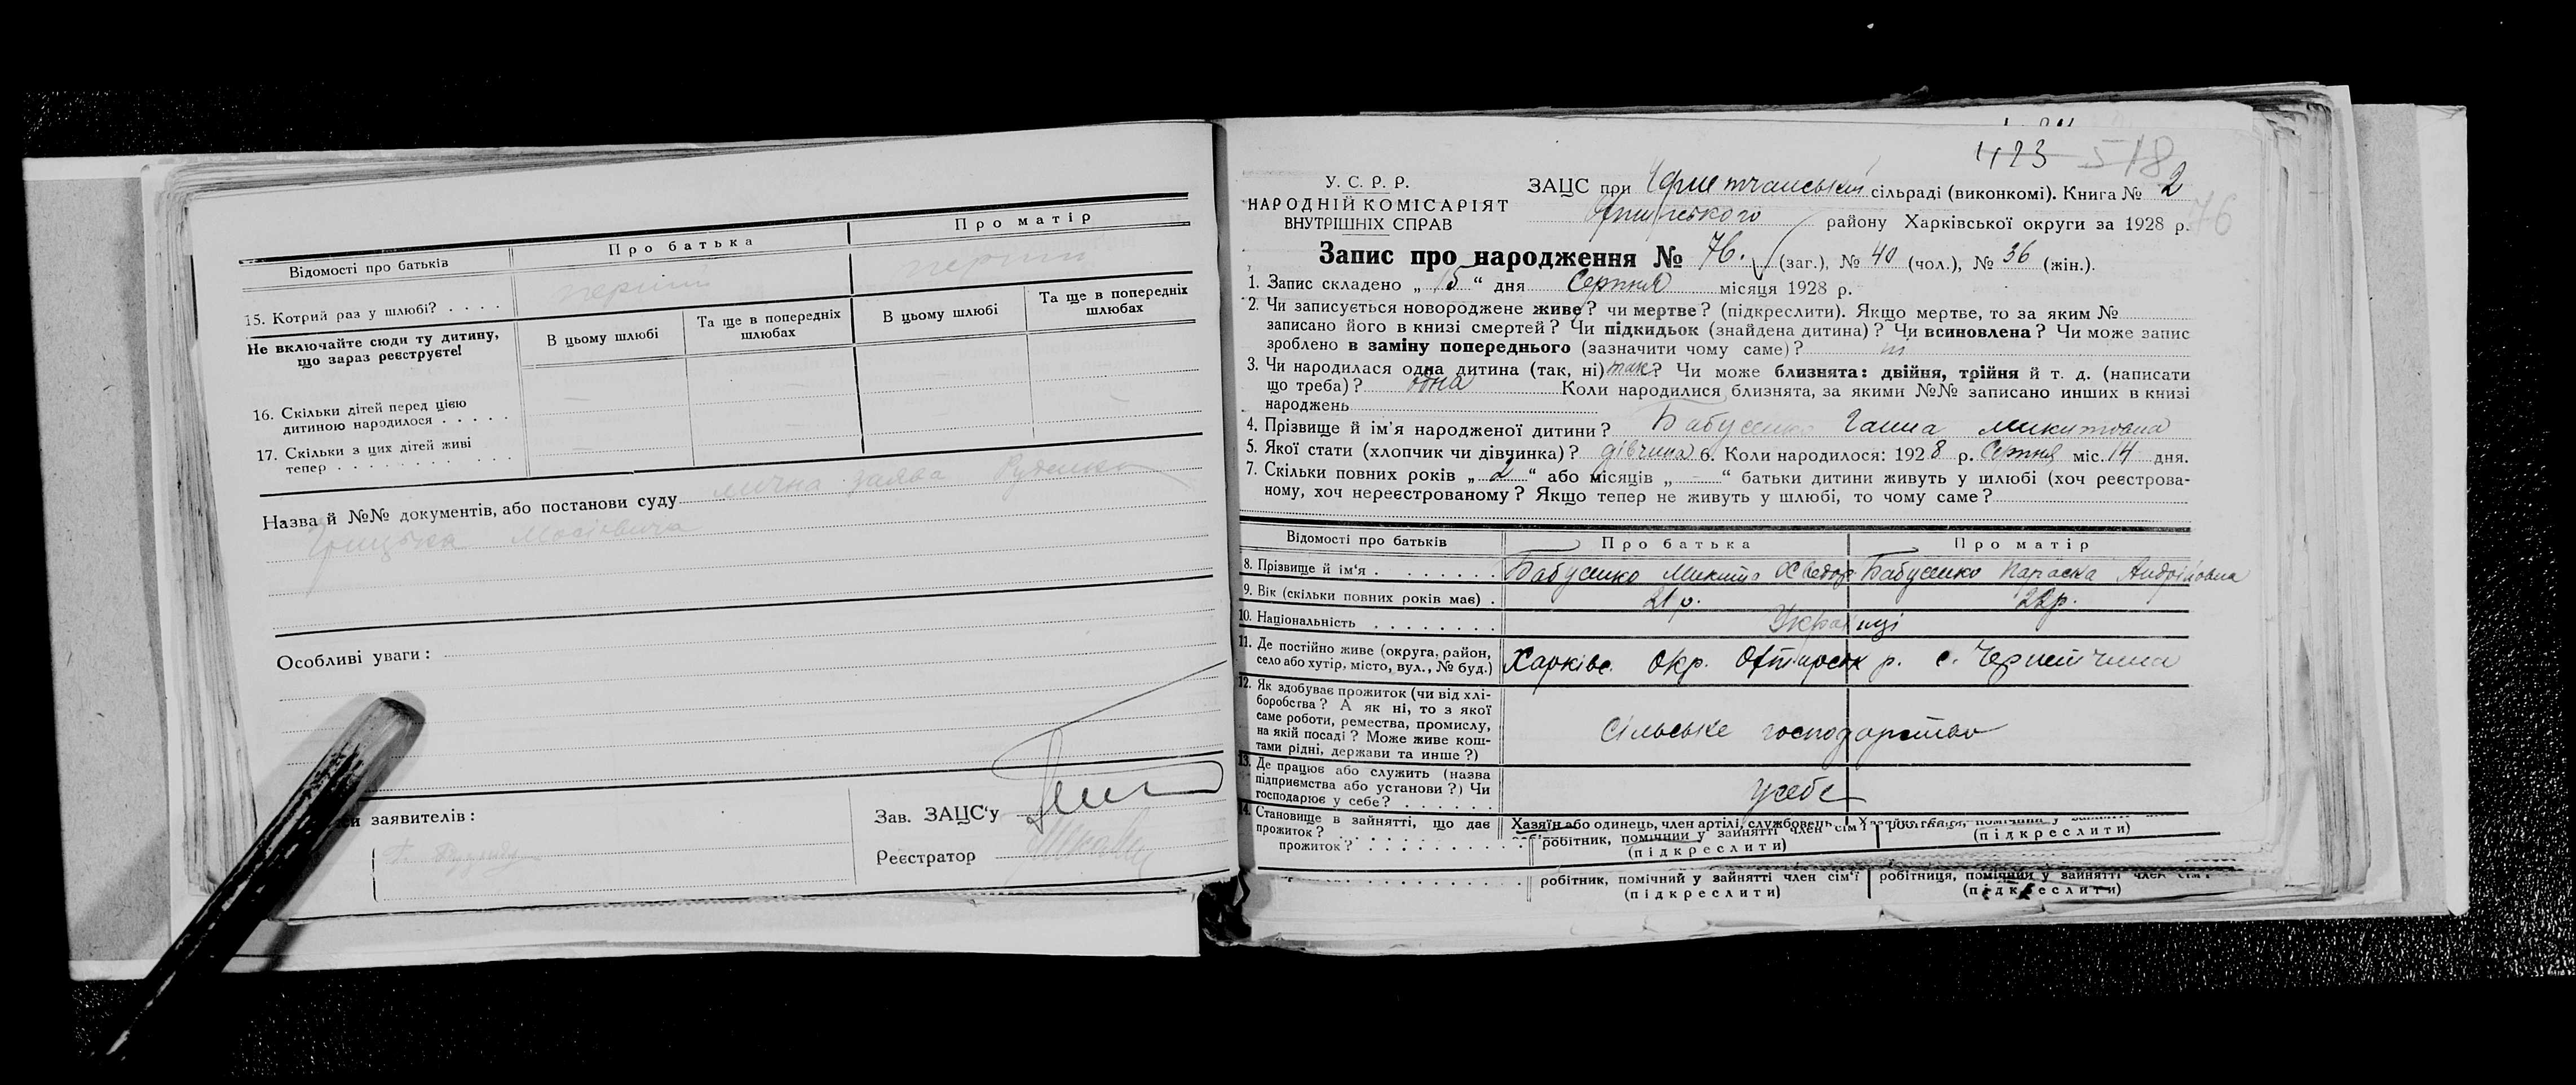 Відомості про батьків
Про батька
Про матір
15. Котрий раз у шлюбі? . . . .
перший
перший
Не включайте сюди ту дитину, що зараз реєструєте!
В цьому шлюбі
Та ще в попередніх шлюбах
В цьому шлюбі
Та ще в попередніх шлюбах
16. Скільки дітей перед цією
дитиною народилося . . . . .
17. Скільки з цих дітей живі
тепер . . . . . . . . . . .
Назва й №№ документів, або постанови суду лична заява Руденка
Грицька Мосієвича
Особливі уваги:
заявителів:
Зав. ЗАЦС'у
Реєстратор
423 518
У. С. Р. Р.
НАРОДНІЙ КОМІСАРІЯТ
ВНУТРІШНІХ СПРАВ
ЗАЦС при сільраді (виконкомі). Книга № 2
району Харківської округи за 1928 р.
76
Запис про народження № 76. (заг.), № 40 (чол.), № 36 (жін.).
1. Запис складено „ 15 “ дня Серпня місяця 1928 р.
2. Чи записується новороджене живе? чи мертве? (підкреслити). Якщо мертве, то за яким №
записано його в книзі смертей? Чи підкидьок (знайдена дитина)? Чи всиновлена? Чи може запис
зроблено в заміну попереднього (зазначити чому саме)? ні
3. Чи народилася одна дитина (так, ні) так? Чи може близнята: двійня, трійня й т. д. (написати
що треба)? одна Коли народилися близнята, за якими №№ записано инших в книзі
народжень
4. Прізвище й ім'я народженої дитини? Бабусенко Ганна Микитовна
5. Якої стати (хлопчик чи дівчинка)? дівчина 6. Коли народилося: 1928 р. Серпня міс. 14 дня.
7. Скільки повних років „ 2 “ або місяців „ - “ батьки дитини живуть у шлюбі (хоч реєстрова-
ному, хоч нереєстрованому? Якщо тепер не живуть у шлюбі, то чому саме?
Відомості про батьків
Про батька
Про матір
8. Прізвище й ім'я . . . . . . .
Бабусенко Микита Хведор
Бабусенко Параска Андріївна
9. Вік (скільки повних років має) .
21 р.
22 р.
10. Національність . . . . . . . .
Українці
11. Де постійно живе (округа, район,
село або хутір, місто, вул., № буд.)
Харківс. Окр. Охтирськ р. с. Чернетчина
12. Як здобуває прожиток (чи від хлі-
боробства? А як ні, то з якої
саме роботи, ремества, промислу,
на якій посаді? Може живе кош-
тами рідні, держави та инше?)
Сільське господарство
13. Де працює або служить (назва
підприємства або установи?) Чи
господарює у себе? . . . . . .
у себе
14. Становище в зайнятті, що дає
прожиток?
Хазяїн або одинець, член артілі, службовець,
робітник, помічний у зайнятті член сім'ї
(підкреслити)
(підкреслити)
прожиток? . . . . . . . . . . .
робітник, помічний у зайнятті член сім'ї
(підкреслити)
робітниця, помічний у зайнятті член сім'ї
(підкреслити)